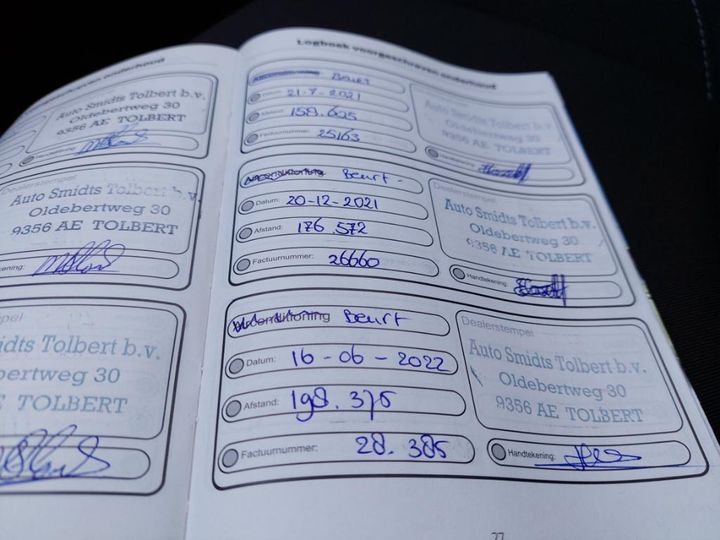 Auto Smidts Tolbert b.v.
Oldebertweg 30
9356 AE TOLBERT
Dealerstempel
Auto Smidts Tolbert b.v.
Oldebertweg 30
9356 AE TOLBERT
TOLBERT
Logboek voorgeschreven onderhoud
Beurt
21-7-2021
Afstand: 158.605
Factuurnummer: 25163
Auto Smidts Tolbert b.v.
Oldebertweg 30
9356 AE TOLBERT
Airconditioning Beurt -
Datum: 20-12-2021
Afstand: 176 572
Factuurnummer: 26660
Dealerstempel
Auto Smidts Tolbert b.v.
Oldebertweg 30
9356 AE TOLBERT
Handtekening:
Airconditioning Beurt
Datum: 16-06-2022
Afstand: 198.375
Factuurnummer: 28.385
Dealerstempel
Auto Smidts Tolbert b.v.
Oldebertweg 30
9356 AE TOLBERT
Handtekening: